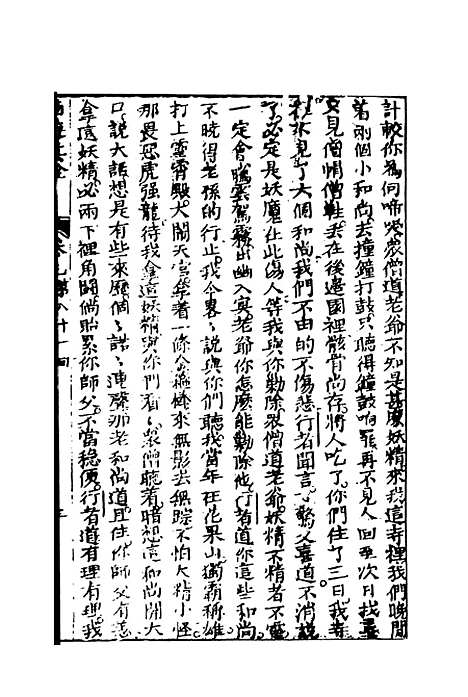 計較你為何啼哭眾僧道老爺不知是甚麼妖精來我這寺裡我們晚間
著兩個小和尚去撞鐘打鼓只聽得鐘鼓响罷再不見人回至次日找尋
又見僧帽僧鞋丟在後邊園裡骸骨尚存將人吃了你們住了三日我寺
裡不見了六個和尚我們不由的不傷悲行者聞言又驚又喜道不消說
了必定是妖魔在此傷人等我與你勦除眾僧道老爺妖精不精者不靈
一定會騰雲駕霧出幽入冥老爺你怎麼能勦除他行者道你這些和尚
不曉得老孫的行止我今畧畧說與你們聽我當年在花果山獨霸稱雄
打上靈霄殿大鬧天宮拿著一條金箍棒來無影去無踪不怕大精小怪
那畏惡虎强龍待我拿這妖精與你們看看眾僧聽著暗想這和尚開大
口說大話想是有些來歷個個諾諾連聲那老和尚道且住你師父有恙
拿這妖精必兩下裡角鬪倘貽累你師父不當穩便行者道有理有理我
卷九第八十一回